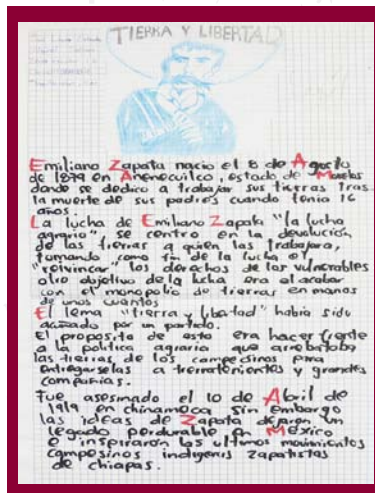 TIERRA Y LIBERTAD
Emiliano Zapata nacio el 8 de Agosto
de 1879 en Anenecuilco, estado de Morelos
donde se dedico a trabajar sus tierras tras
la muerte de sus padres cuando tenia 16
años.
La lucha de Emiliano Zapata "la lucha
agraria" se centro en la devolucion
de las tierras a quien las trabajara,
tomando como fin de la lucha el
"reivincar" los derechos de los vulnerables
otro objetivo de la lucha era el acabar
con el monopolio de tierras en manos
de unos cuantos
El lema "tierra y libertad" habia sido
por un partido.
El proposito de esto era hacer frente
a la politica agraria que arrebataba
las tierras de los campesinos para
entregarselas a terratenientes y grandes
compañias.
Fue asesinado el 10 de Abril de
1919 en chinameca sin embargo
las ideas de Zapata dejaron un
legado perdurable en México
e inspiraron los ultimos movimientos
campesinos indigenas zapatistas
de chiapas.